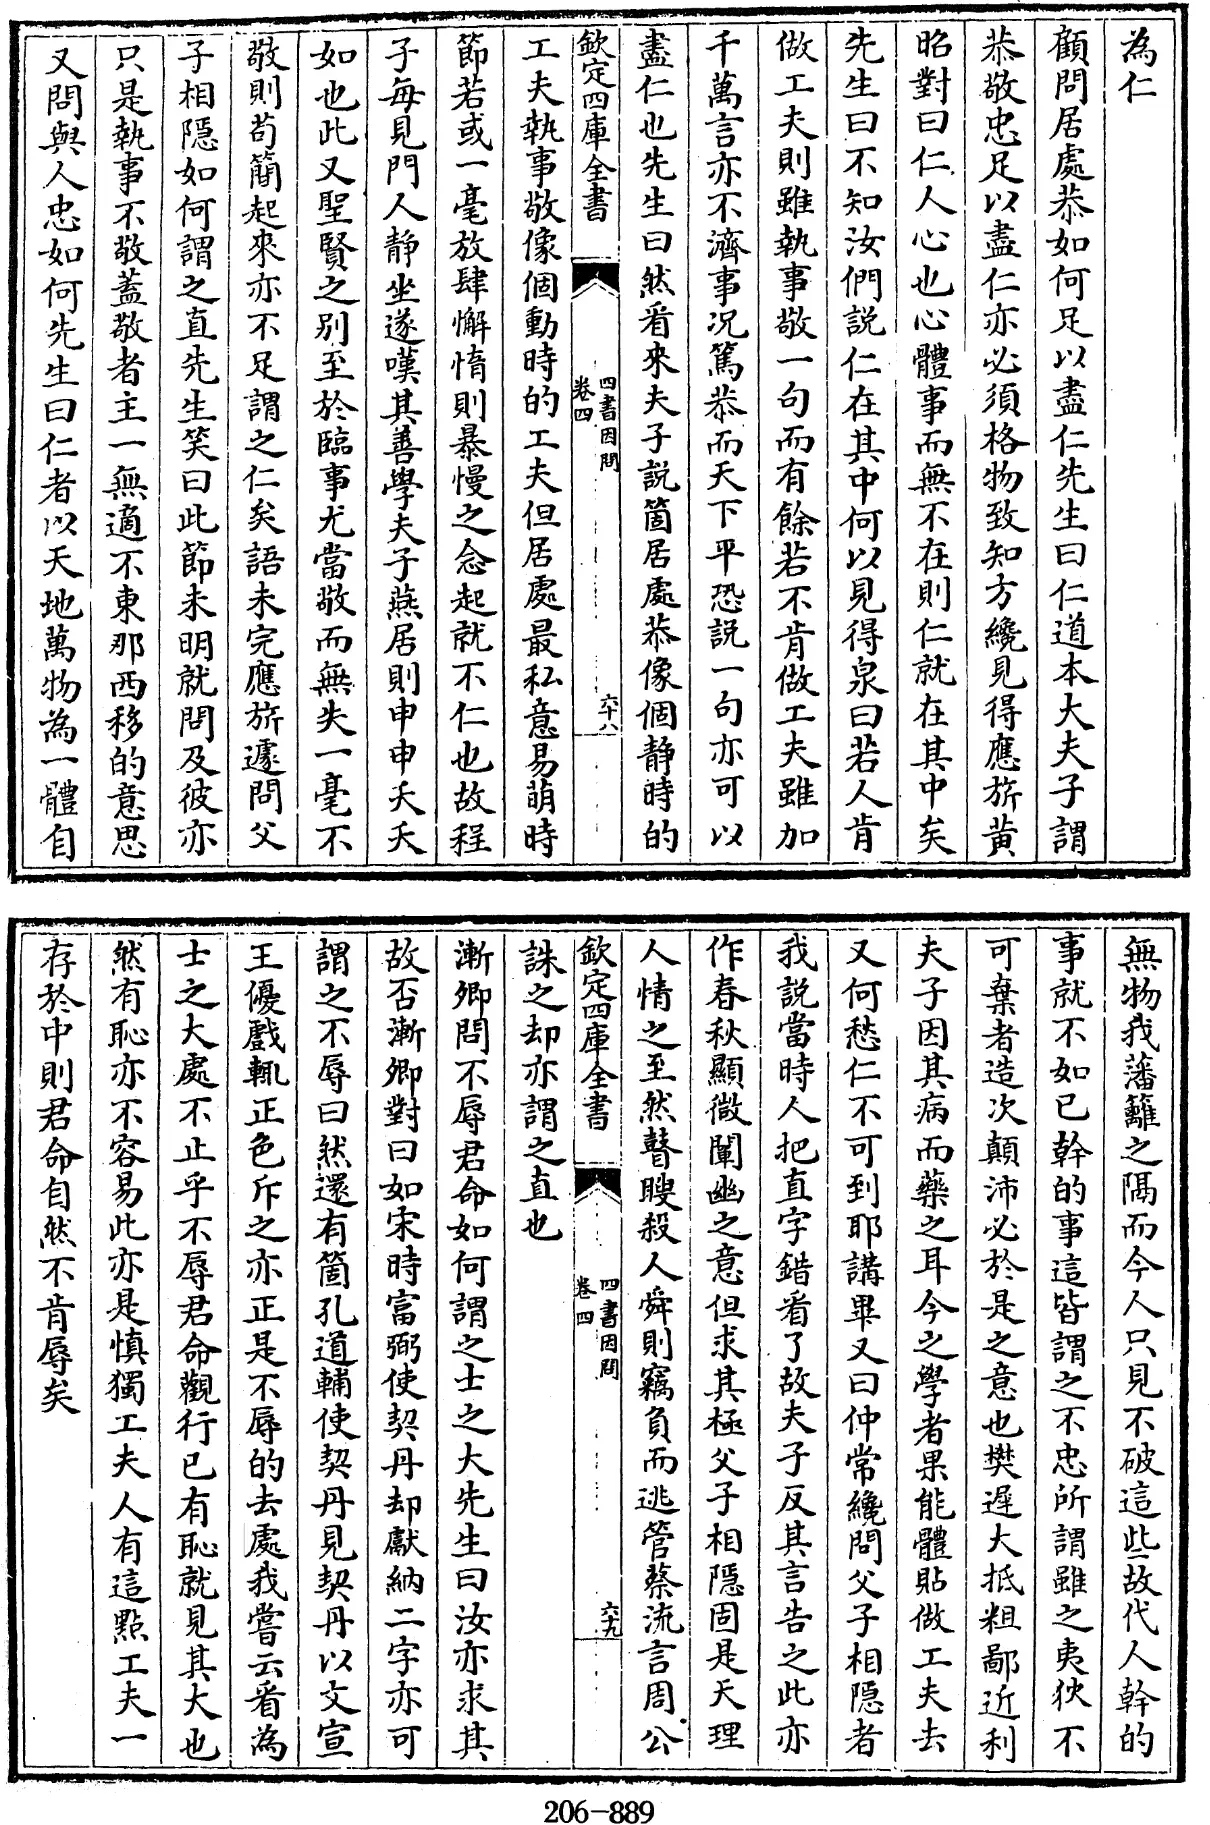 為仁
顧問居處恭如何足以盡仁先生曰仁道本大夫子謂
恭敬忠足以盡仁亦必須格物致知方纔見得應旂黃
昭對曰仁人心也心體事而無不在則仁就在其中矣
先生曰不知汝們説仁在其中何以見得泉曰若人肯
做工夫則雖執事敬一句而有餘若不肯做工夫雖加
千萬言亦不濟事况篤恭而天下平恐説一句亦可以
盡仁也先生曰然看來夫子説箇居處恭像個静時的
欽定四庫全書
四書因問
卷四
六十八
工夫執事敬像個動時的工夫但居處最私意易萌時
節若或一毫放肆懈惰則暴慢之念起就不仁也故程
子每見門人静坐遂嘆其善學夫子燕居則申申夭夭
如也此又聖賢之别至於臨事尤當敬而無失一毫不
敬則苟簡起來亦不足謂之仁矣語未完應旂遽問父
子相隱如何謂之直先生笑曰此節未明就問及彼亦
只是執事不敬蓋敬者主一無適不東那西移的意思
又問與人忠如何先生曰仁者以天地萬物為一體自
無物我藩籬之隔而今人只見不破這些故代人幹的
事就不如已幹的事這皆謂之不忠所謂雖之夷狄不
可棄者造次顛沛必於是之意也樊遲大抵粗鄙近利
夫子因其病而藥之耳今之學者果能體貼做工夫去
又何愁仁不可到耶講畢又曰仲常纔問父子相隱者
我説當時人把直字錯看了故夫子反其言告之此亦
作春秋顯微闡幽之意但求其極父子相隱固是天理
人情之至然瞽瞍殺人舜則竊負而逃管蔡流言周公
欽定四庫全書
四書因問
卷四
六十九
誅之却亦謂之直也
漸卿問不辱君命如何謂之士之大先生曰汝亦求其
故否漸卿對曰如宋時富弼使契丹却獻納二字亦可
謂之不辱曰然還有箇孔道輔使契丹見契丹以文宣
王優戲輒正色斥之亦正是不辱的去處我嘗云看為
士之大處不止乎不辱君命觀行已有恥就見其大也
然有恥亦不容易此亦是慎獨工夫人有這點工夫一
存於中則君命自然不肯辱矣
206-889